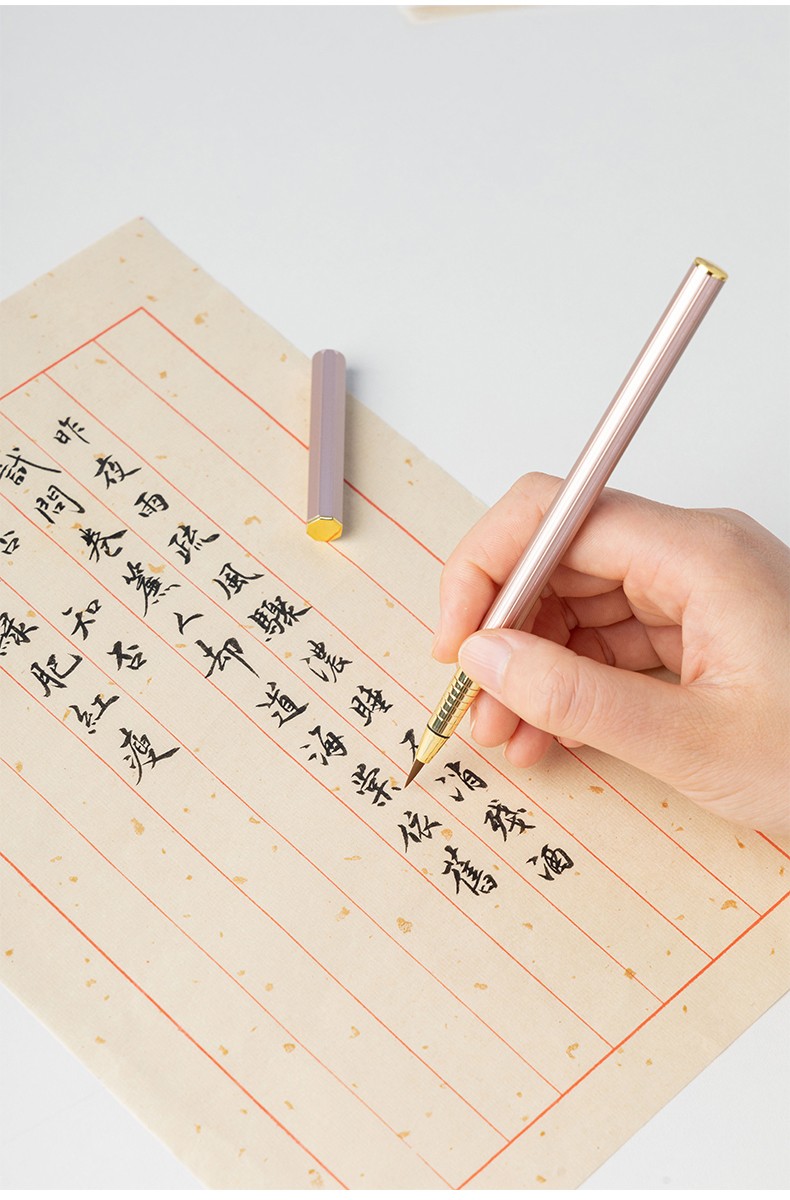 昨夜雨疏風驟濃睡消殘酒
試問卷簾人却道海棠依舊
否知否
綠肥紅瘦